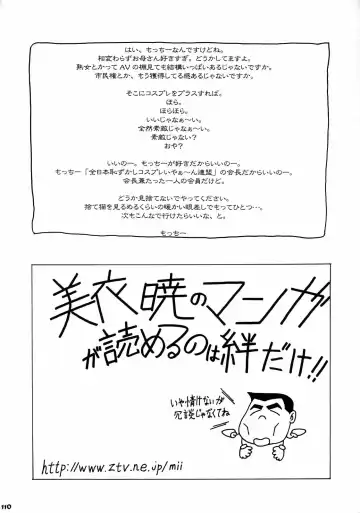 はい、もっちーなんですけどね。
相変わらずお母さん好きすぎ。どうかしてますよ。
熟女とかってAVの棚見ても結構いっぱいあるじゃないですか。
市民権とか、もう獲得してる感あるじゃないですか。
そこにコスプレをプラスすれば。
ほら。
ほらほら。
いいじゃなぁ〜い。
全然素敵じゃなぁ〜い。
素敵じゃない?
おや?
いいのー。もっちーが好きだからいいのー。
もっちー「全日本恥ずかしコスプレいやぁ〜ん連盟」の会長だからいいのー。
会長兼たった一人の会員だけど。
どうか見捨てないでやってください。
捨て猫を見るめるくらいの暖かい眼差しでもってひとつ…。
次もこんなで行けたらいいな、と。
もっちー
美衣暁のマンガ
が読めるのは絆だけ!!
いや情けないが
冗談じゃなくてね
http://www.ztv.ne.jp/mii
110